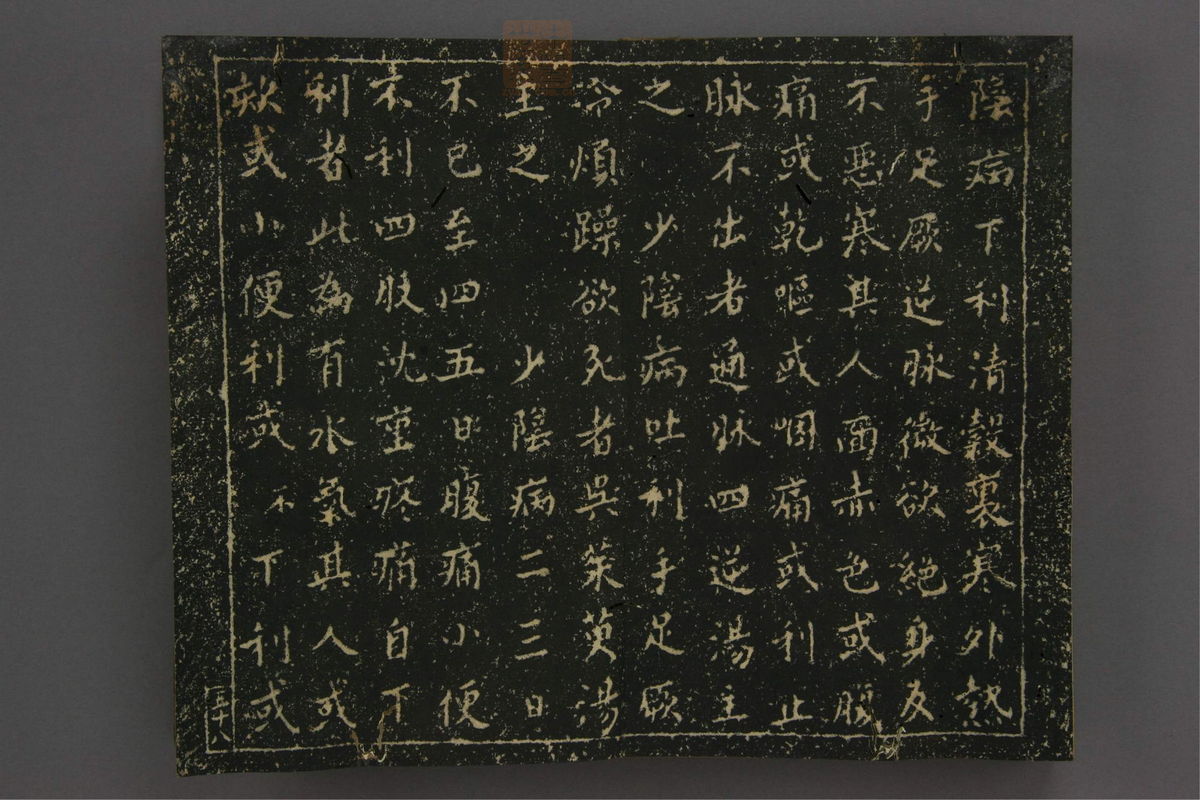 陰病下利清穀裏寒外熱
手足厥逆脉微欲絶身反
不惡寒其人面赤色或腹
痛或乾嘔或咽痛或利止
脉不出者通脉四逆湯主
之 少陰病吐利手足厥
冷煩躁欲死者吳茱萸湯
主之 少陰病二三日
不已至四五日腹痛小便
不利四肢沈重疼痛自下
利者此為有水氣其人或
欬或小便利或不下利或